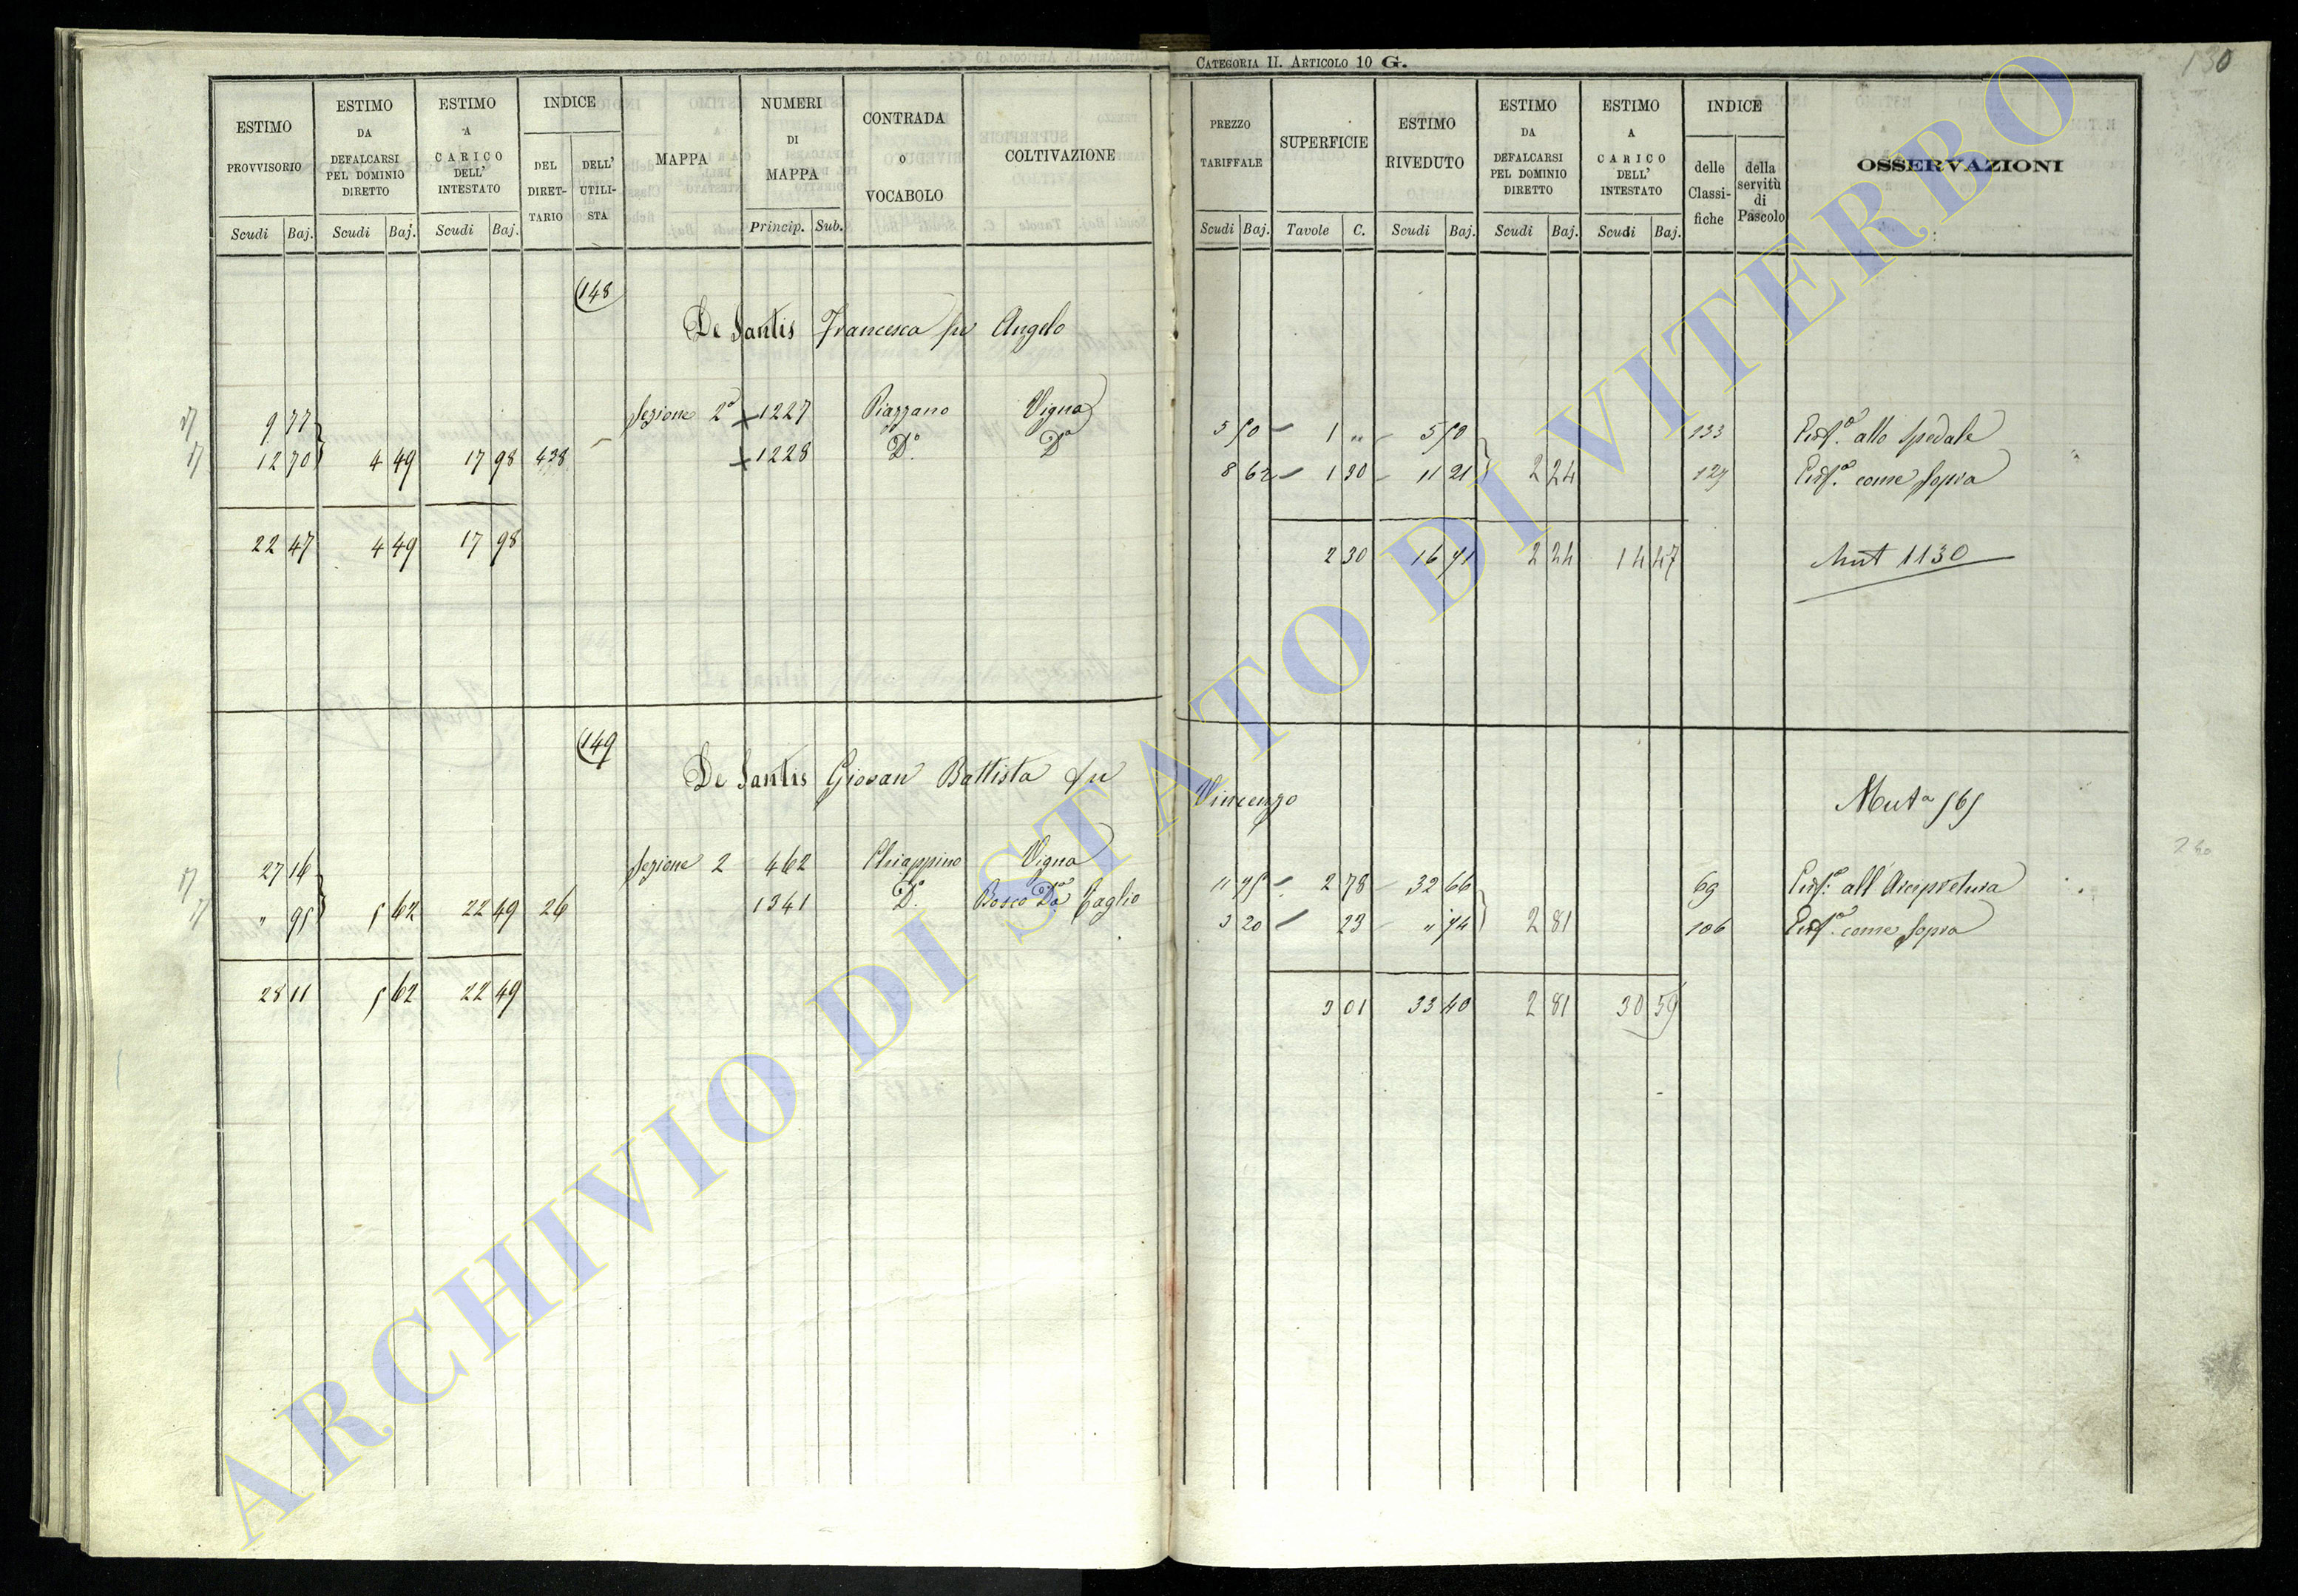 CATEGORIA II. ARTICOLO 10 G.
130
ESTIMO PROVVISORIO
ESTIMO DA DEFALCARSI PEL DOMINIO DIRETTO
ESTIMO A CARICO DELL' INTESTATO
INDICE
DEL DIRET-TARIO
DELL' UTILI-STA
MAPPA
NUMERI DI MAPPA
CONTRADA o VOCABOLO
COLTIVAZIONE
PREZZO TARIFFALE
SUPERFICIE
ESTIMO RIVEDUTO
ESTIMO DA DEFALCARSI PEL DOMINIO DIRETTO
ESTIMO A CARICO DELL' INTESTATO
INDICE
delle Classi-fiche
della servitù di Pascolo
OSSERVAZIONI
Scudi Baj. Scudi Baj. Scudi Baj. Princip. Sub. Scudi Baj. Tavole C. Scudi Baj. Scudi Baj. Scudi Baj.
148
De Santis Francesca fu Angelo
9 77 Sezione 2ª 1227 Piazzano Vigna 5 50 1 " 5 50 133 Enfª allo Spedale
12 70 4 49 17 98 438 1228 Dº Dª 8 62 1 30 11 21 2 24 127 Enfª come Sopra
22 47 4 49 17 98 2 30 16 71 2 24 14 47 Mut 1130
149
De Santis Giovan Battista fu Vincenzo Mutª 565
27 16 Sezione 2 462 Chiappino Vigna 11 75 2 78 32 66 69 Enfª all' Arcipretura
" 95 5 62 22 49 26 1341 Dº Bosco Da Taglio 3 20 23 " 74 2 81 106 Enfª come Sopra
28 11 5 62 22 49 3 01 33 40 2 81 30 59
ARCHIVIO DI STATO DI VITERBO